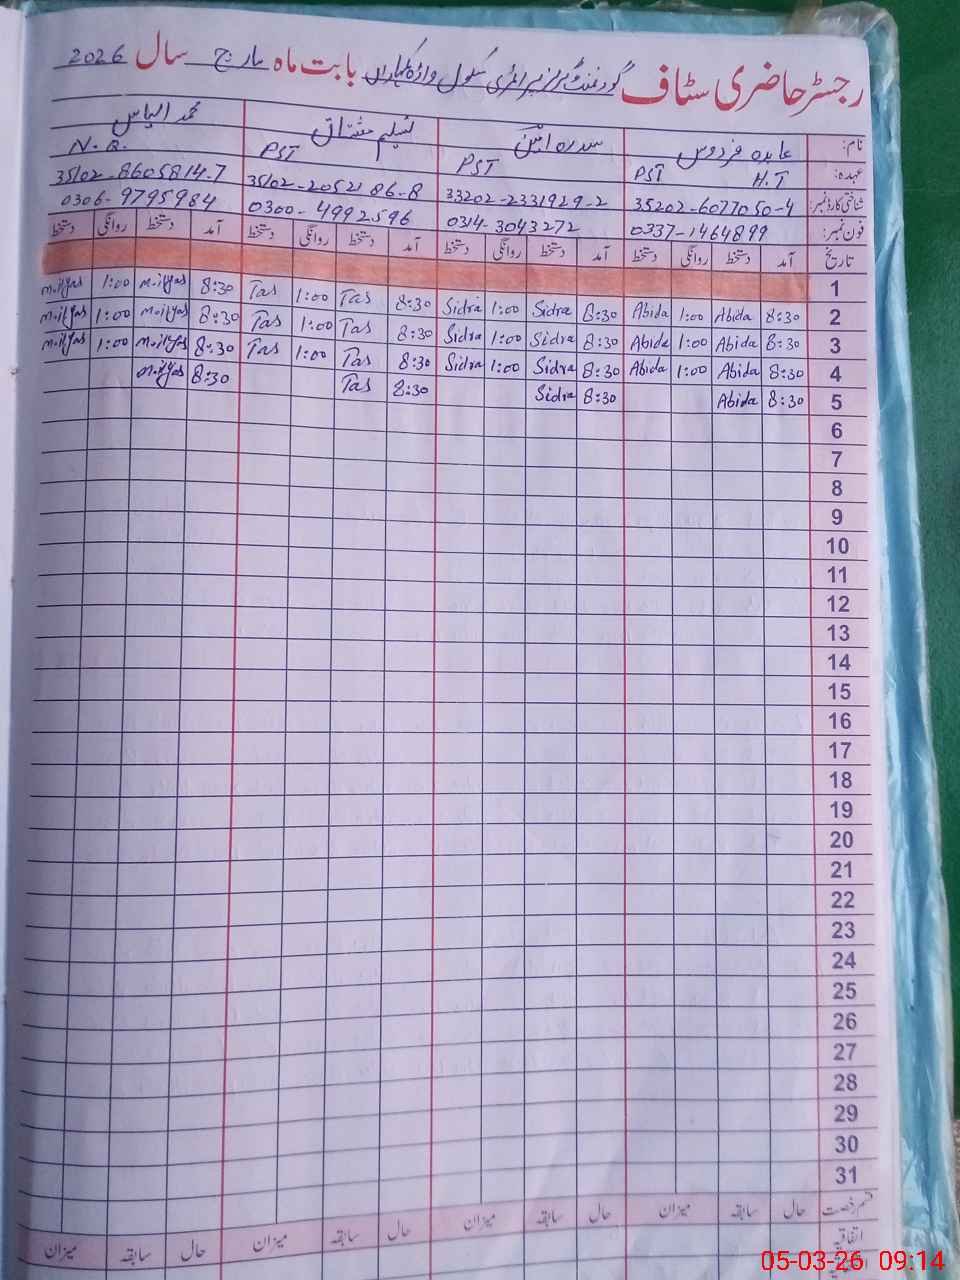 رجسٹر حاضری سٹاف گورنمنٹ گرلز پرائمری سکول واڑہ کمہاراں بابت ماہ مارچ سال 2026
نام: عابدہ فردوس سدرہ امین تسلیم مشتاق محمد الیاس
عہدہ: PST H.T PST PST N.Q.
شناختی کارڈ نمبر: 35202-6077050-4 33202-2331929-2 35102-2052186-8 35102-8605814-7
فون نمبر: 0337-1464899 0314-3043272 0300-4992596 0306-9795984
تاریخ آمد دستخط روانگی دستخط آمد دستخط روانگی دستخط آمد دستخط روانگی دستخط آمد دستخط روانگی دستخط
1
2 8:30 Abida 1:00 Abida 8:30 Sidra 1:00 Sidra 8:30 Tas 1:00 Tas 8:30 M.ilyas 1:00 M.ilyas
3 8:30 Abida 1:00 Abida 8:30 Sidra 1:00 Sidra 8:30 Tas 1:00 Tas 8:30 M.ilyas 1:00 M.ilyas
4 8:30 Abida 1:00 Abida 8:30 Sidra 1:00 Sidra 8:30 Tas 1:00 Tas 8:30 M.ilyas 1:00 M.ilyas
5 8:30 Abida 8:30 Sidra 8:30 Tas 8:30 M.ilyas
6
7
8
9
10
11
12
13
14
15
16
17
18
19
20
21
22
23
24
25
26
27
28
29
30
31
قسم رخصت حال سابقہ میزان حال سابقہ میزان حال سابقہ میزان حال سابقہ میزان
اتفاقیہ
05-03-26 09:14